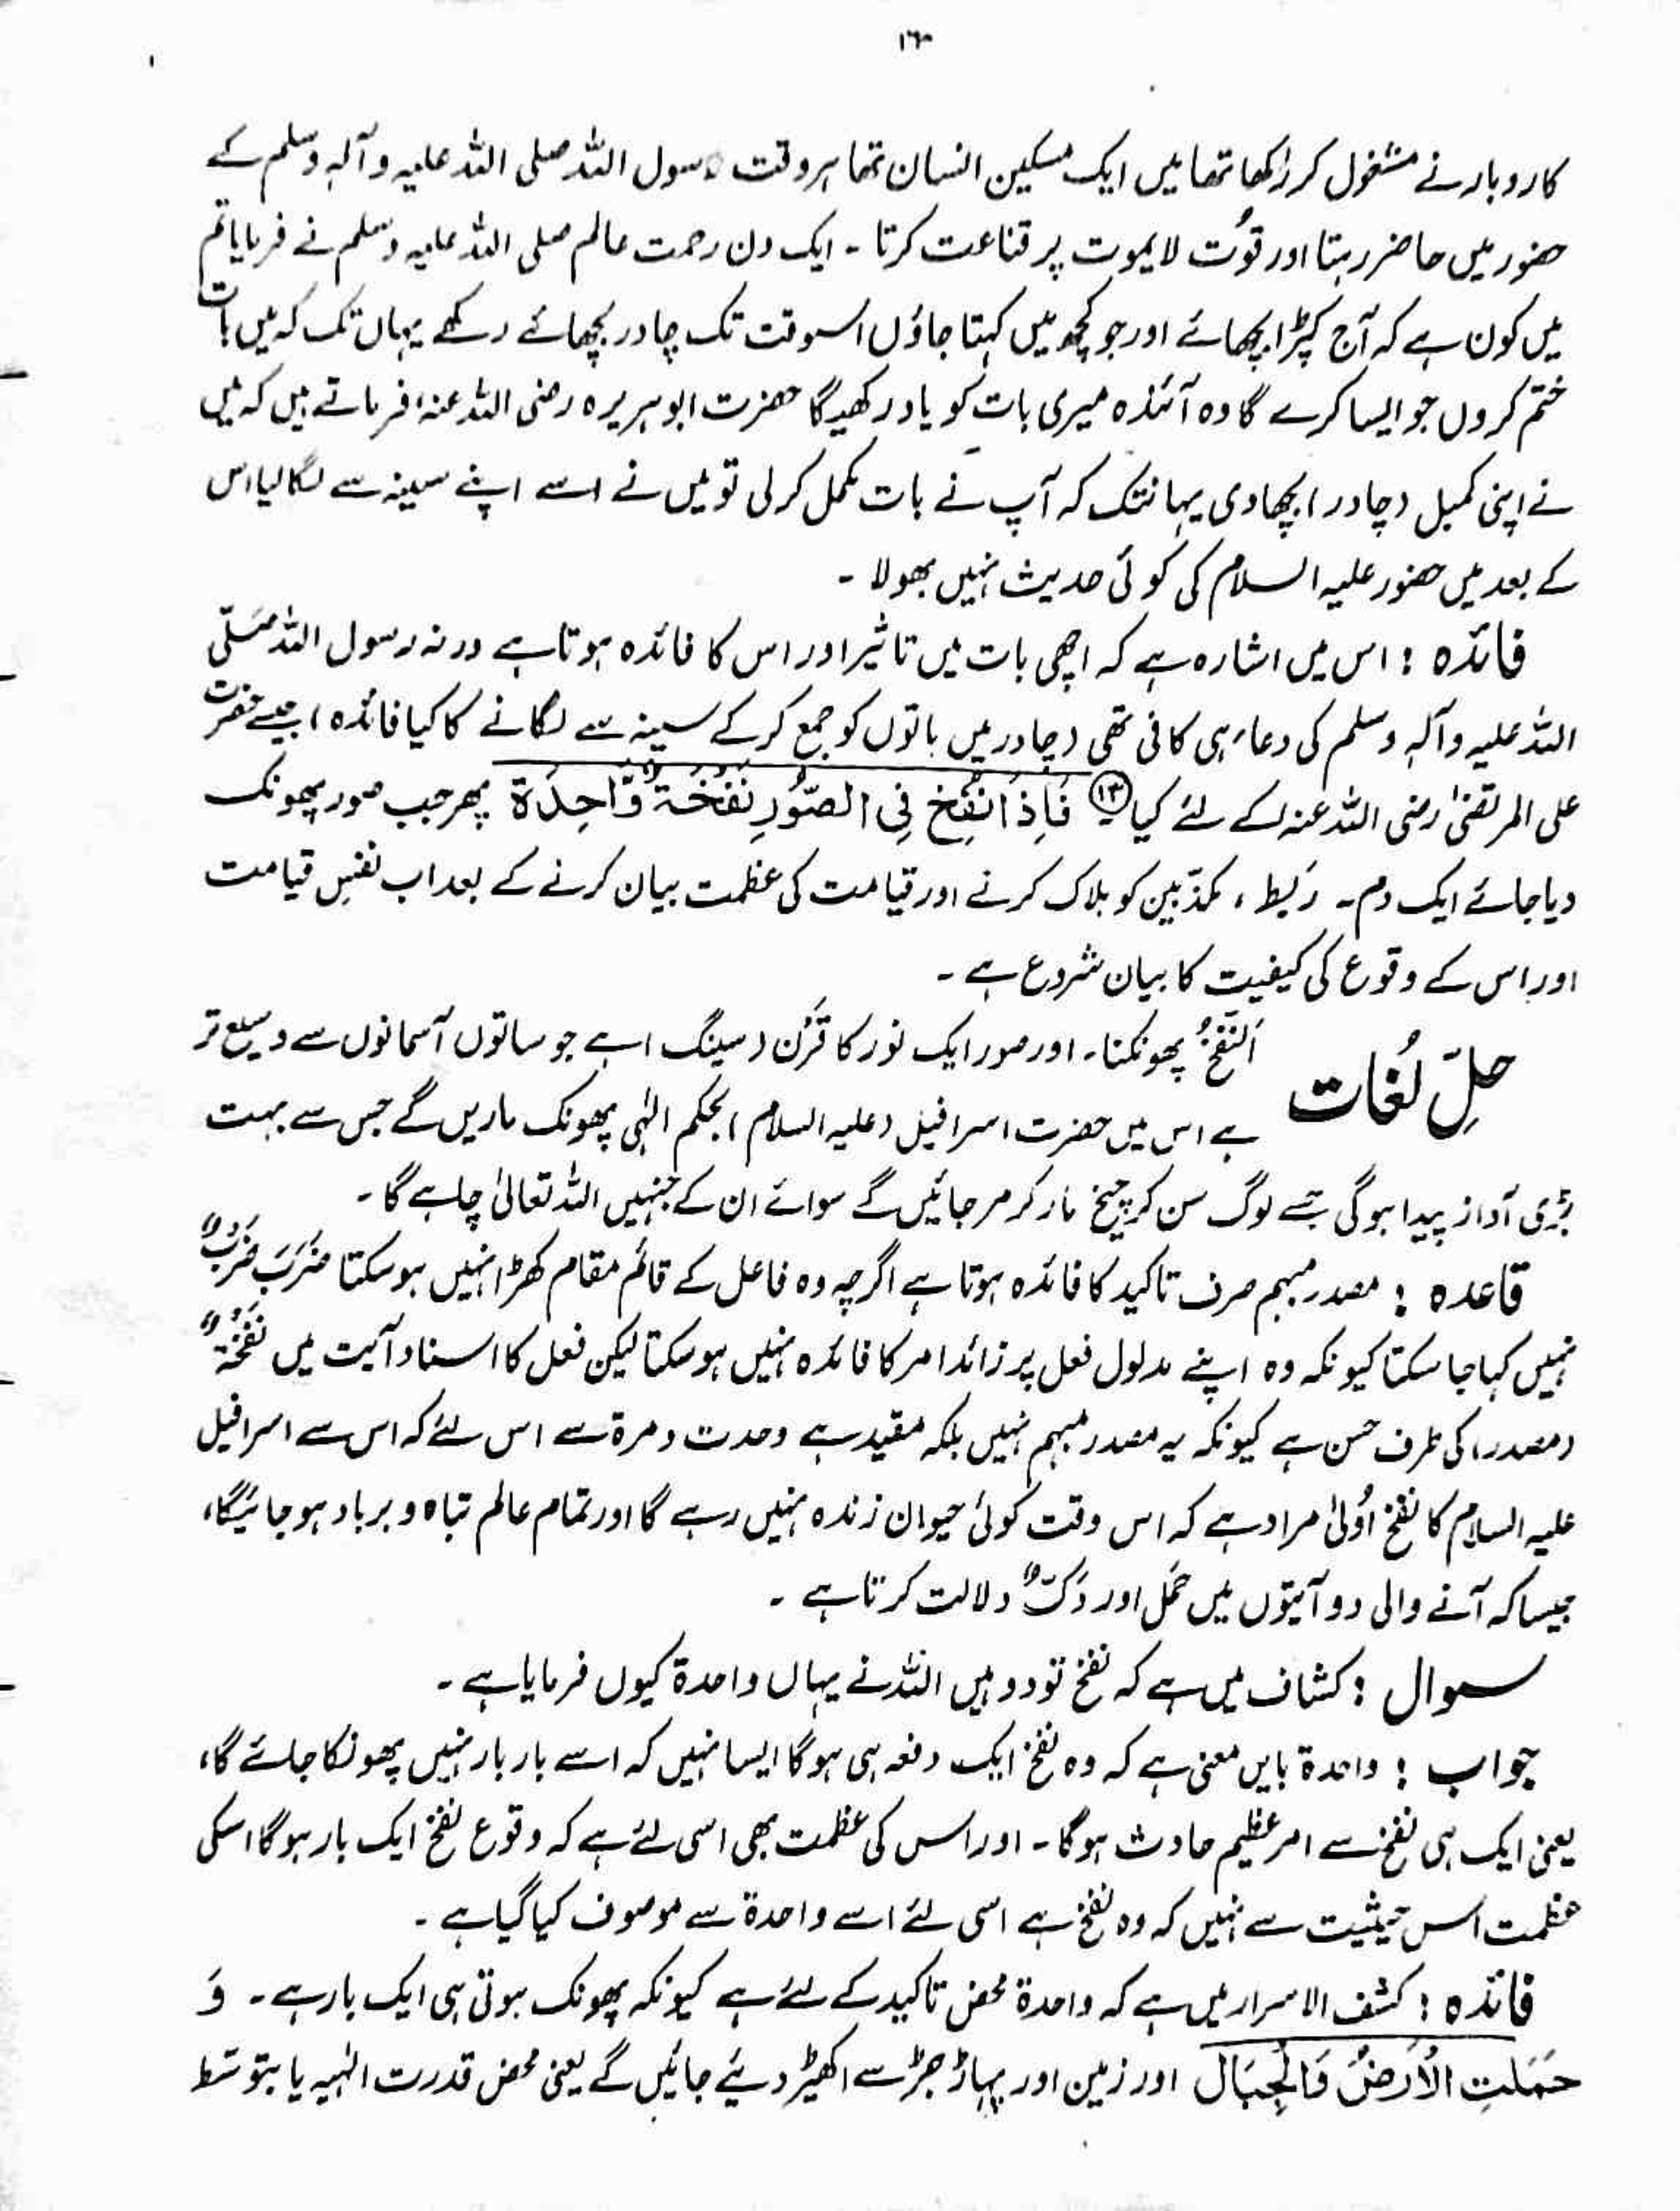 ۱۶۰
کاروبار نے مشغول کر رکھا تھا میں ایک مسکین انسان تھا ہر وقت رسول اللہ صلی اللہ علیہ وآلہ وسلم کے
حضور میں حاضر رہتا اور قُوت لایموت پر قناعت کرتا ۔ ایک دن رحمت عالم صلی اللہ علیہ وسلم نے فرمایا تم
میں کون ہے کہ آج کپڑا بچھائے اور جو کچھ میں کہتا جاؤں اسوقت تک چادر بچھائے رکھے یہاں تک کہ میں بات
ختم کروں جو ایسا کرے گا وہ آئندہ میری بات کو یاد رکھیگا حضرت ابوہریرہ رضی اللہ عنہ، فرماتے ہیں کہ میں
نے اپنی کمبل (چادر) بچھا دی یہانتک کہ آپ نے بات مکمل کر لی تو میں نے اسے اپنے سینہ سے لگا لیا اس
کے بعد میں حضور علیہ السلام کی کوئی حدیث نہیں بھولا ۔
فائدہ : اس میں اشارہ ہے کہ اچھی بات میں تاثیر اور اس کا فائدہ ہوتا ہے ورنہ رسول اللہ صَلّی
اللہ علیہ وآلہ وسلم کی دعاء ہی کافی تھی (چادر میں باتوں کو جمع کر کے سینہ سے لگانے کا کیا فائدہ) جیسے حضرت
علی المرتضیٰ رضی اللہ عنہ کے لئے کیا ⁧(۱۳)⁩ فَاِذَا نُفِخَ فِی الصُّوْرِ نَفْخَۃٌ وَّاحِدَۃٌ پھر جب صور پھونک
دیا جائے ایک دم۔ رَبط ، مکذّبین کو ہلاک کرنے اور قیامت کی عظمت بیان کرنے کے بعد اب نفسِ قیامت
اور اس کے وقوع کی کیفیت کا بیان شروع ہے ۔
حلِّ لُغات اَلنَّفْخُ پھونکنا۔ اور صور ایک نور کا قَرْن (سینگ) ہے جو ساتوں آسمانوں سے وسیع تر
ہے اس میں حضرت اسرافیل (علیہ السلام) بحکم الٰہی پھونک ماریں گے جس سے بہت
بڑی آواز پیدا ہوگی جسے لوگ سن کر چیخ مار کر مر جائیں گے سوائے ان کے جنہیں اللہ تعالیٰ چاہے گا ۔
قاعدہ : مصدر مبہم صرف تاکید کا فائدہ ہوتا ہے اگرچہ وہ فاعل کے قائم مقام کھڑا نہیں ہوسکتا ضَرَبَ ضَرْبٌ
نہیں کہا جا سکتا کیونکہ وہ اپنے مدلول فعل پر زائد امر کا فائدہ نہیں ہوسکتا لیکن فعل کا اسناد آیت میں نَفْخَۃٌ
(مصدر) کی طرف حسن ہے کیونکہ یہ مصدر مبہم نہیں بلکہ مقید ہے وحدت و مرۃ سے اس لئے کہ اس سے اسرافیل
علیہ السلام کا نفخ اُولیٰ مراد ہے کہ اس وقت کوئی حیوان زندہ نہیں رہے گا اور تمام عالم تباہ و برباد ہو جائیگا،
جیسا کہ آنے والی دو آیتوں میں حَمْل اور دَکٌّ دلالت کرتا ہے ۔
سوال : کشاف میں ہے کہ نفخ تو دو ہیں اللہ نے یہاں واحدۃ کیوں فرمایا ہے ۔
جواب : واحدۃ بایں معنی ہے کہ وہ نفخ ایک دفعہ ہی ہوگا ایسا نہیں کہ اسے بار بار نہیں پھونکا جائے گا،
یعنی ایک ہی نفخ سے امر عظیم حادث ہوگا ۔ اور اس کی عظمت بھی اسی لئے ہے کہ وقوع نفخ ایک بار ہوگا اسکی
عظمت اس حیثیت سے نہیں کہ وہ نفخ ہے اسی لئے اسے واحدۃ سے موصوف کیا گیا ہے ۔
فائدہ : کشف الاسرار میں ہے کہ واحدۃ محض تاکید کے لئے ہے کیونکہ پھونک ہوتی ہی ایک بار ہے ۔ وَ
حُمِلَتِ الْاَرْضُ وَالْجِبَالُ اور زمین اور پہاڑ جڑ سے اکھیڑ دئیے جائیں گے یعنی محض قدرت الٰہیہ یا بتوسّط